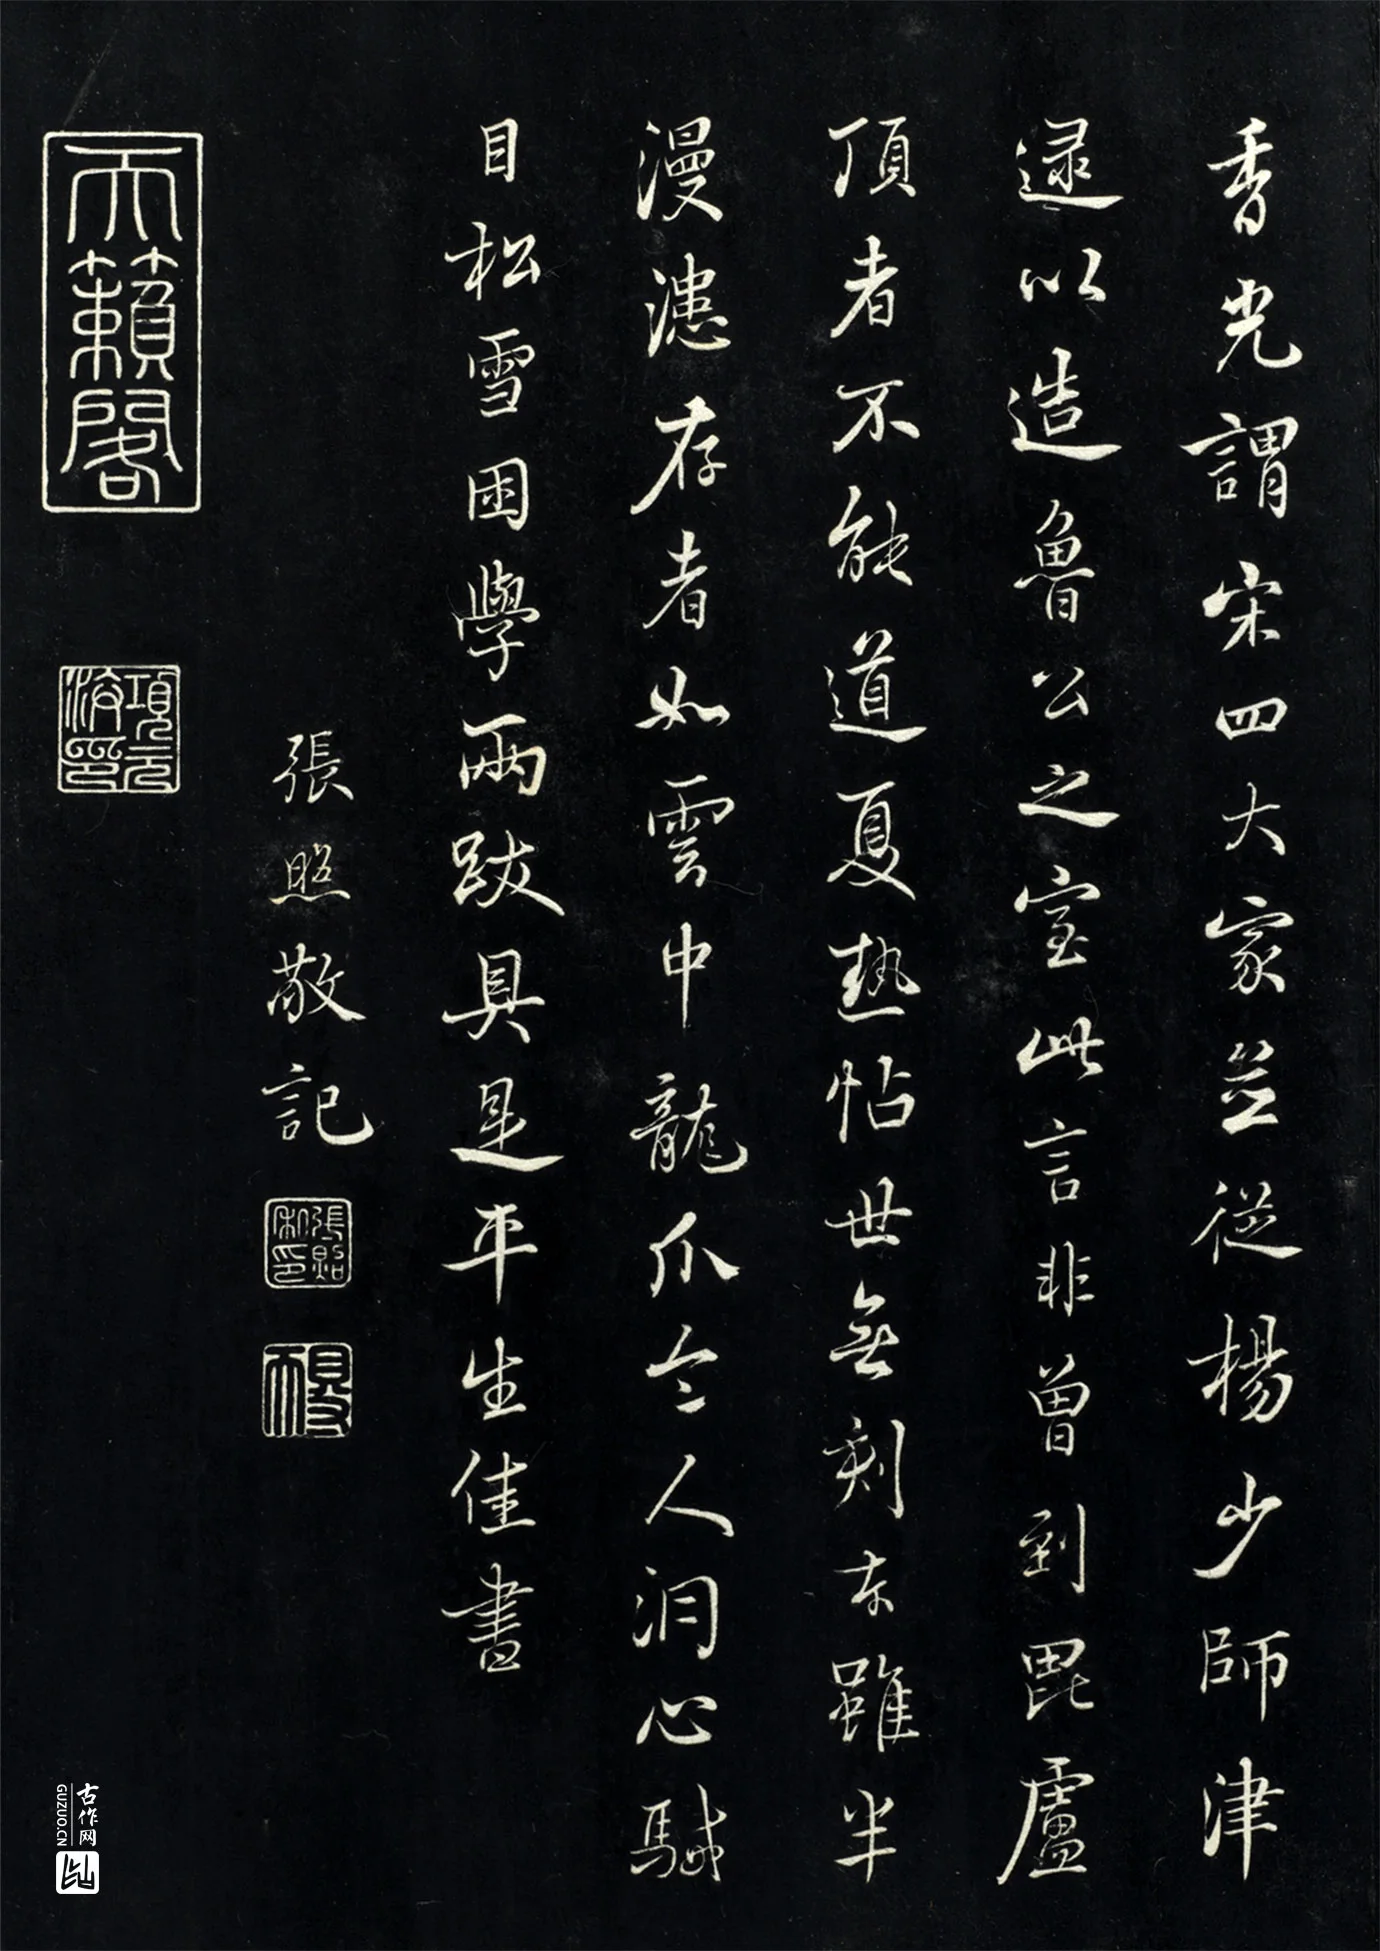 香光謂宋四大家並從楊少師津
逮以造魯公之室此言非曾到毘盧
頂者不能道夏熱帖世無刻本雖半
漫漶存者如雲中龍爪令人洞心駴
目松雪困學兩跋具是平生佳書
張照敬記
張照私印
得天
天籟閣
項元汴印
古作网
GUZUO.CN